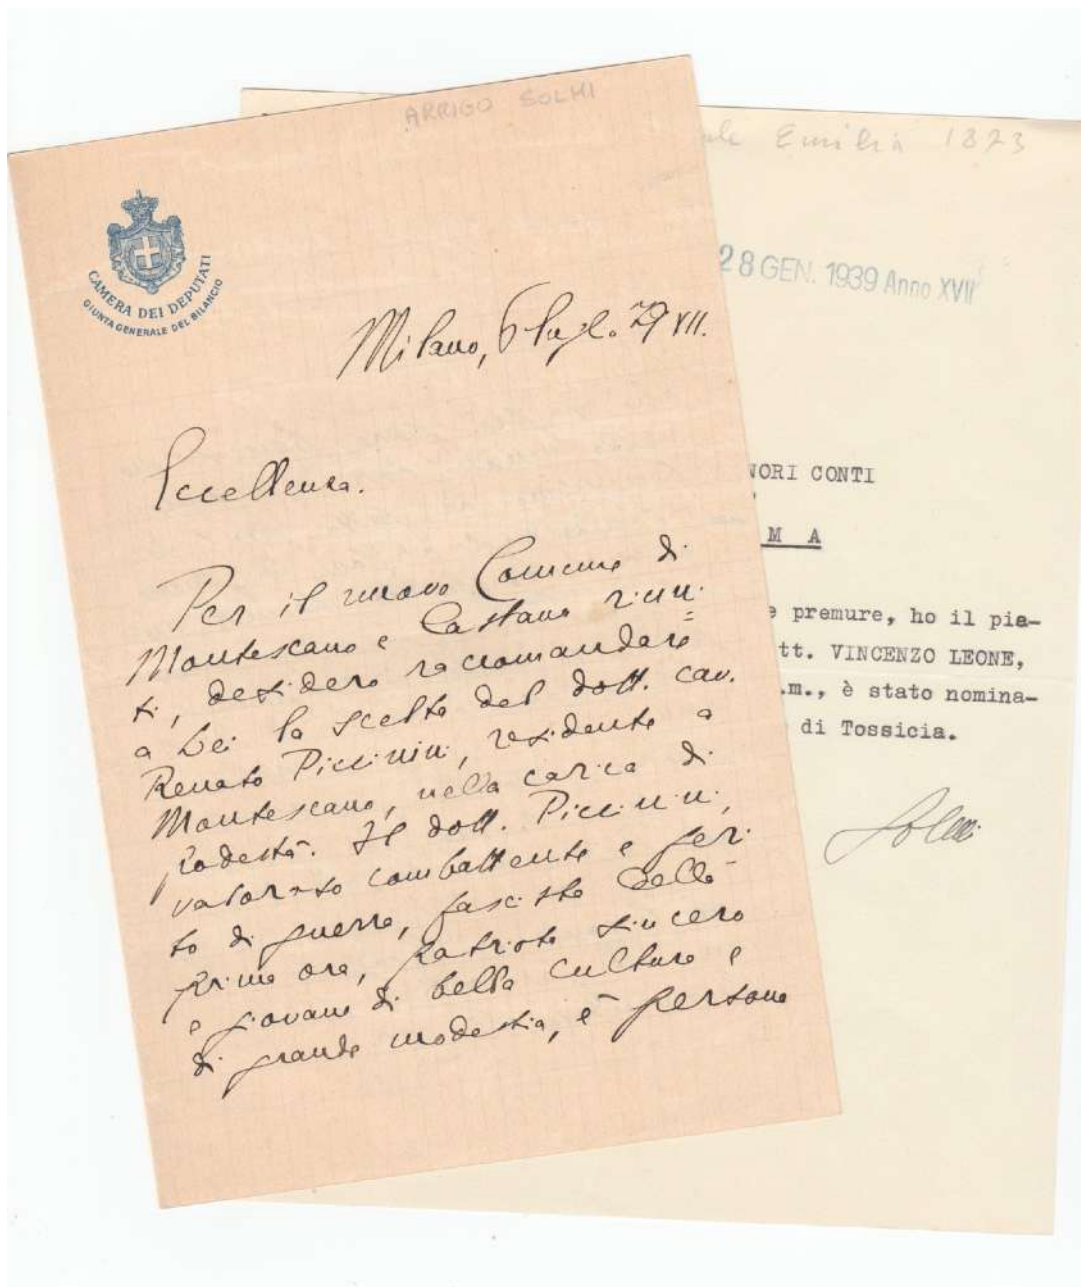 ARRIGO SOLMI
CAMERA DEI DEPUTATI
GIUNTA GENERALE DEL BILANCIO
Milano, 6 lugl. 29 VII.
Eccellenza.
Per il nuovo Comune di
Montescano e Castana riuni
ti, desidero raccomandare
a Lei la scelta del dott. cav.
Renato Piccinini, residente a
Montescano, nella carica di
Podestà. Il dott. Piccinini,
valoroso combattente e feri
to di guerra, fascista della
prima ora, patriota sincero
e giovane di bella cultura e
di grande modestia, è persona
Emilia 1873
28 GEN. 1939 Anno XVII
NORI CONTI
M A
e premure, ho il pia-
tt. VINCENZO LEONE,
.m., è stato nomina-
di Tossicia.
Solmi